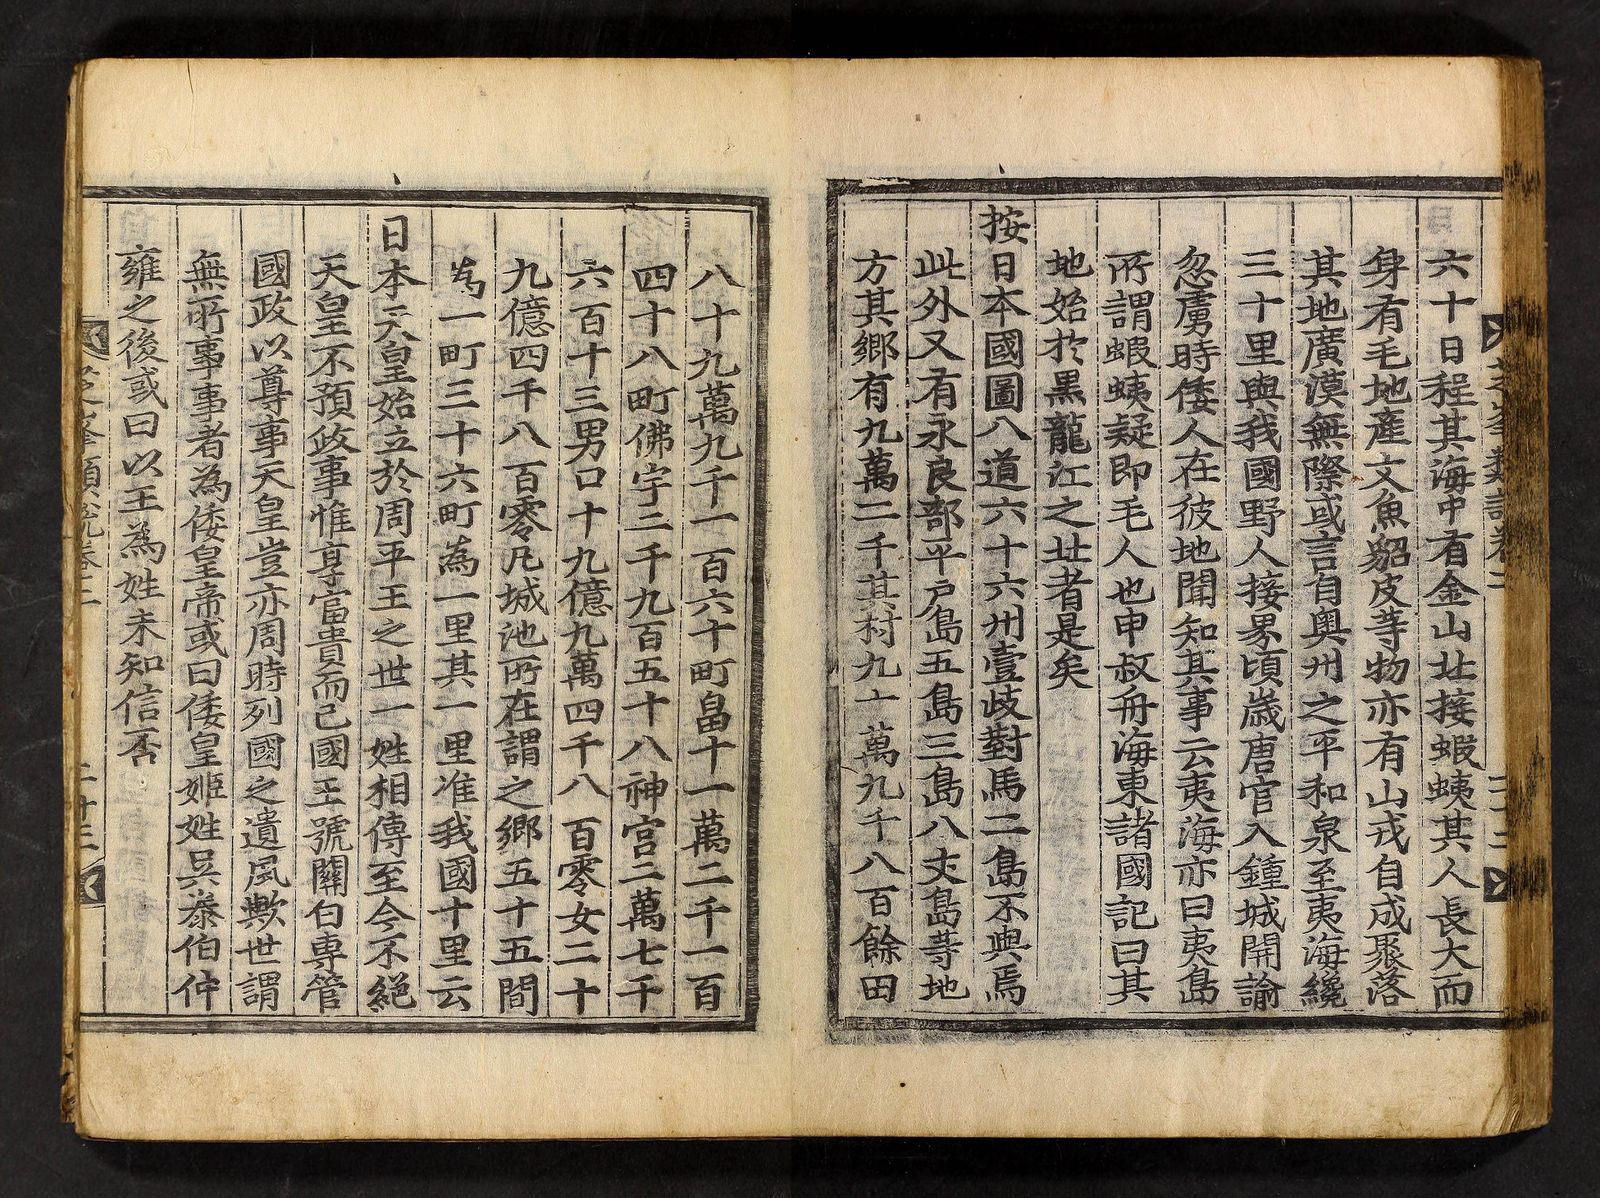 六十日程其海中有金山北接蝦蛦其人長大而
身有毛地產文魚貂皮等物亦有山戎自成聚落
其地廣漠無際或言自奥州之平和泉至夷海纔
三十里與我國野人接界頃歲唐官入鍾城開諭
忽虜時倭人在彼地聞知其事云夷海亦曰夷島
所謂蝦蛦疑即毛人也申叔舟海東諸國記曰其
地始於黑龍江之北者是矣
按日本國圖八道六十六州壹歧對馬二島不與焉
此外又有永良部平戶島五島三島八丈島等地
方其鄉有九萬二千其村九十萬九千八百餘田
八十九萬九千一百六十町畠十一萬二千一百
四十八町佛宇二千九百五十八神宮二萬七千
六百十三男口十九億九萬四千八百零女二十
九億四千八百零凡城池所在謂之鄉五十五間
爲一町三十六町爲一里其一里准我國十里云
日本天皇始立於周平王之世一姓相傳至今不絕
天皇不預政事惟享富貴而已國王號關白專管
國政以尊事天皇豈亦周時列國之遺風歟世謂
無所事事者爲倭皇帝或曰倭皇姬姓吳泰伯仲
雍之後或曰以王爲姓未知信否
芝峯類說卷二
二十三